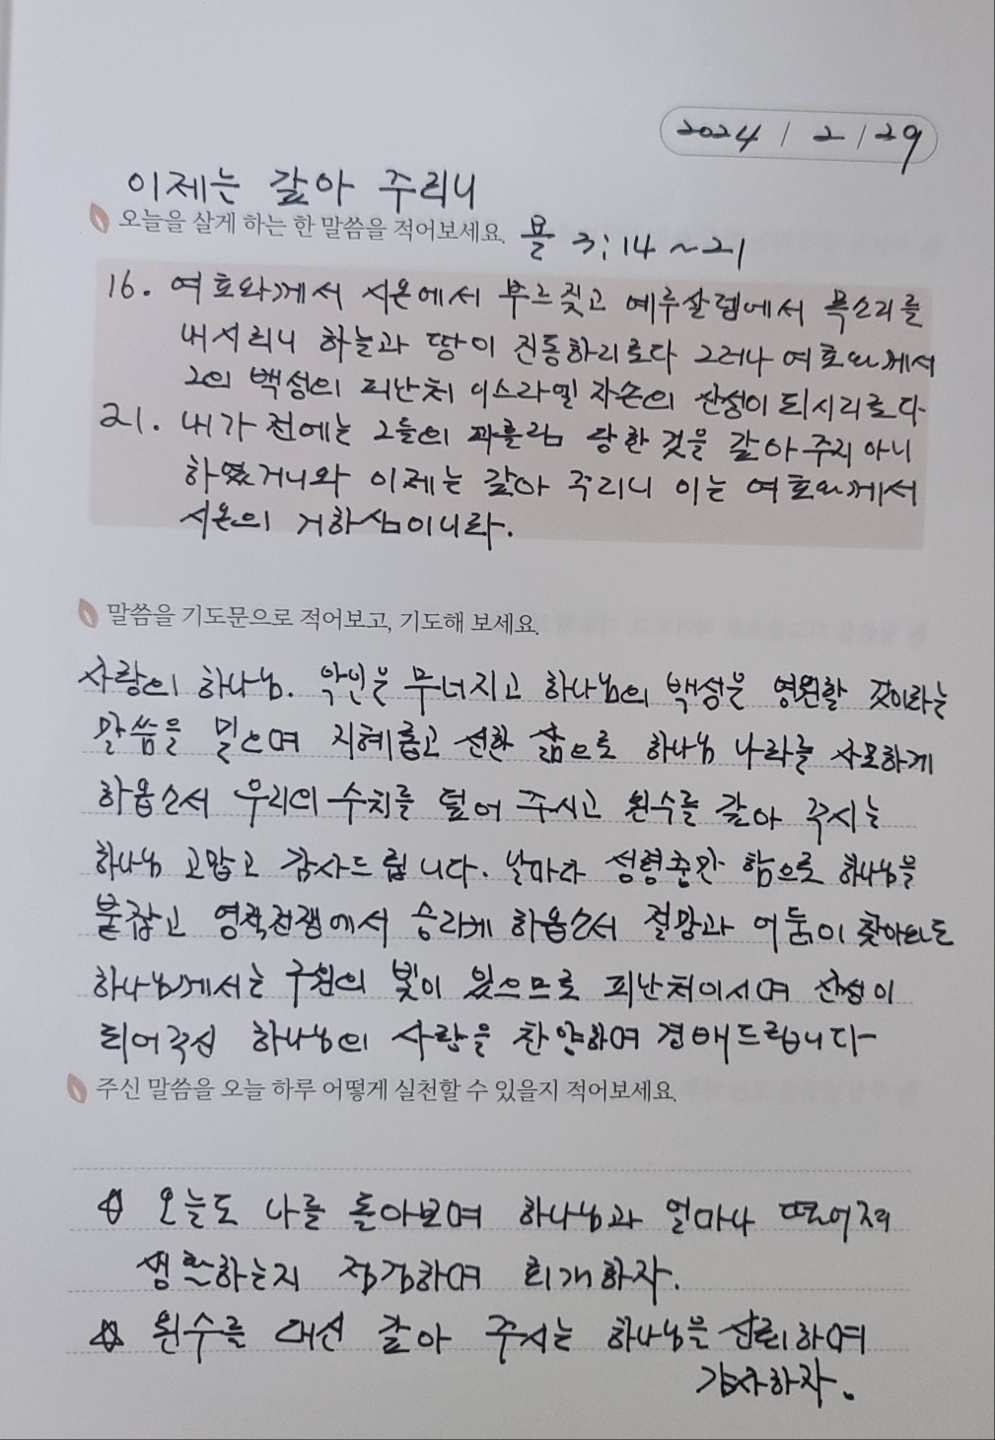 2024 / 2 / 29
이제는 갚아 주리니
오늘을 살게 하는 한 말씀을 적어보세요. 욜 3:14~21
16. 여호와께서 시온에서 부르짖고 예루살렘에서 목소리를
내시리니 하늘과 땅이 진동하리로다 그러나 여호와께서
그의 백성의 피난처 이스라엘 자손의 산성이 되시리로다
21. 내가 전에는 그들의 피흘림 당한 것을 갚아 주지 아니
하였거니와 이제는 갚아 주리니 이는 여호와께서
시온의 거하심이니라.
말씀을 기도문으로 적어보고, 기도해 보세요.
사랑의 하나님. 악인은 무너지고 하나님의 백성은 영원할 것이라는
말씀을 믿으며 지혜롭고 선한 삶으로 하나님 나라를 사모하게
하옵소서 우리의 수치를 덜어 주시고 원수를 갚아 주시는
하나님 고맙고 감사드립니다. 날마다 성령충만 함으로 하나님을
붙잡고 영적전쟁에서 승리케 하옵소서 절망과 어둠이 찾아와도
하나님께서는 구원의 빛이 있으므로 피난처이시며 산성이
되어주신 하나님의 사랑을 찬양하며 경배드립니다-
주신 말씀을 오늘 하루 어떻게 실천할 수 있을지 적어보세요.
☆ 오늘도 나를 돌아보며 하나님과 얼마나 떨어져
생활하는지 점검하며 회개하자.
☆ 원수를 대신 갚아 주시는 하나님을 신뢰하며
감사하자.